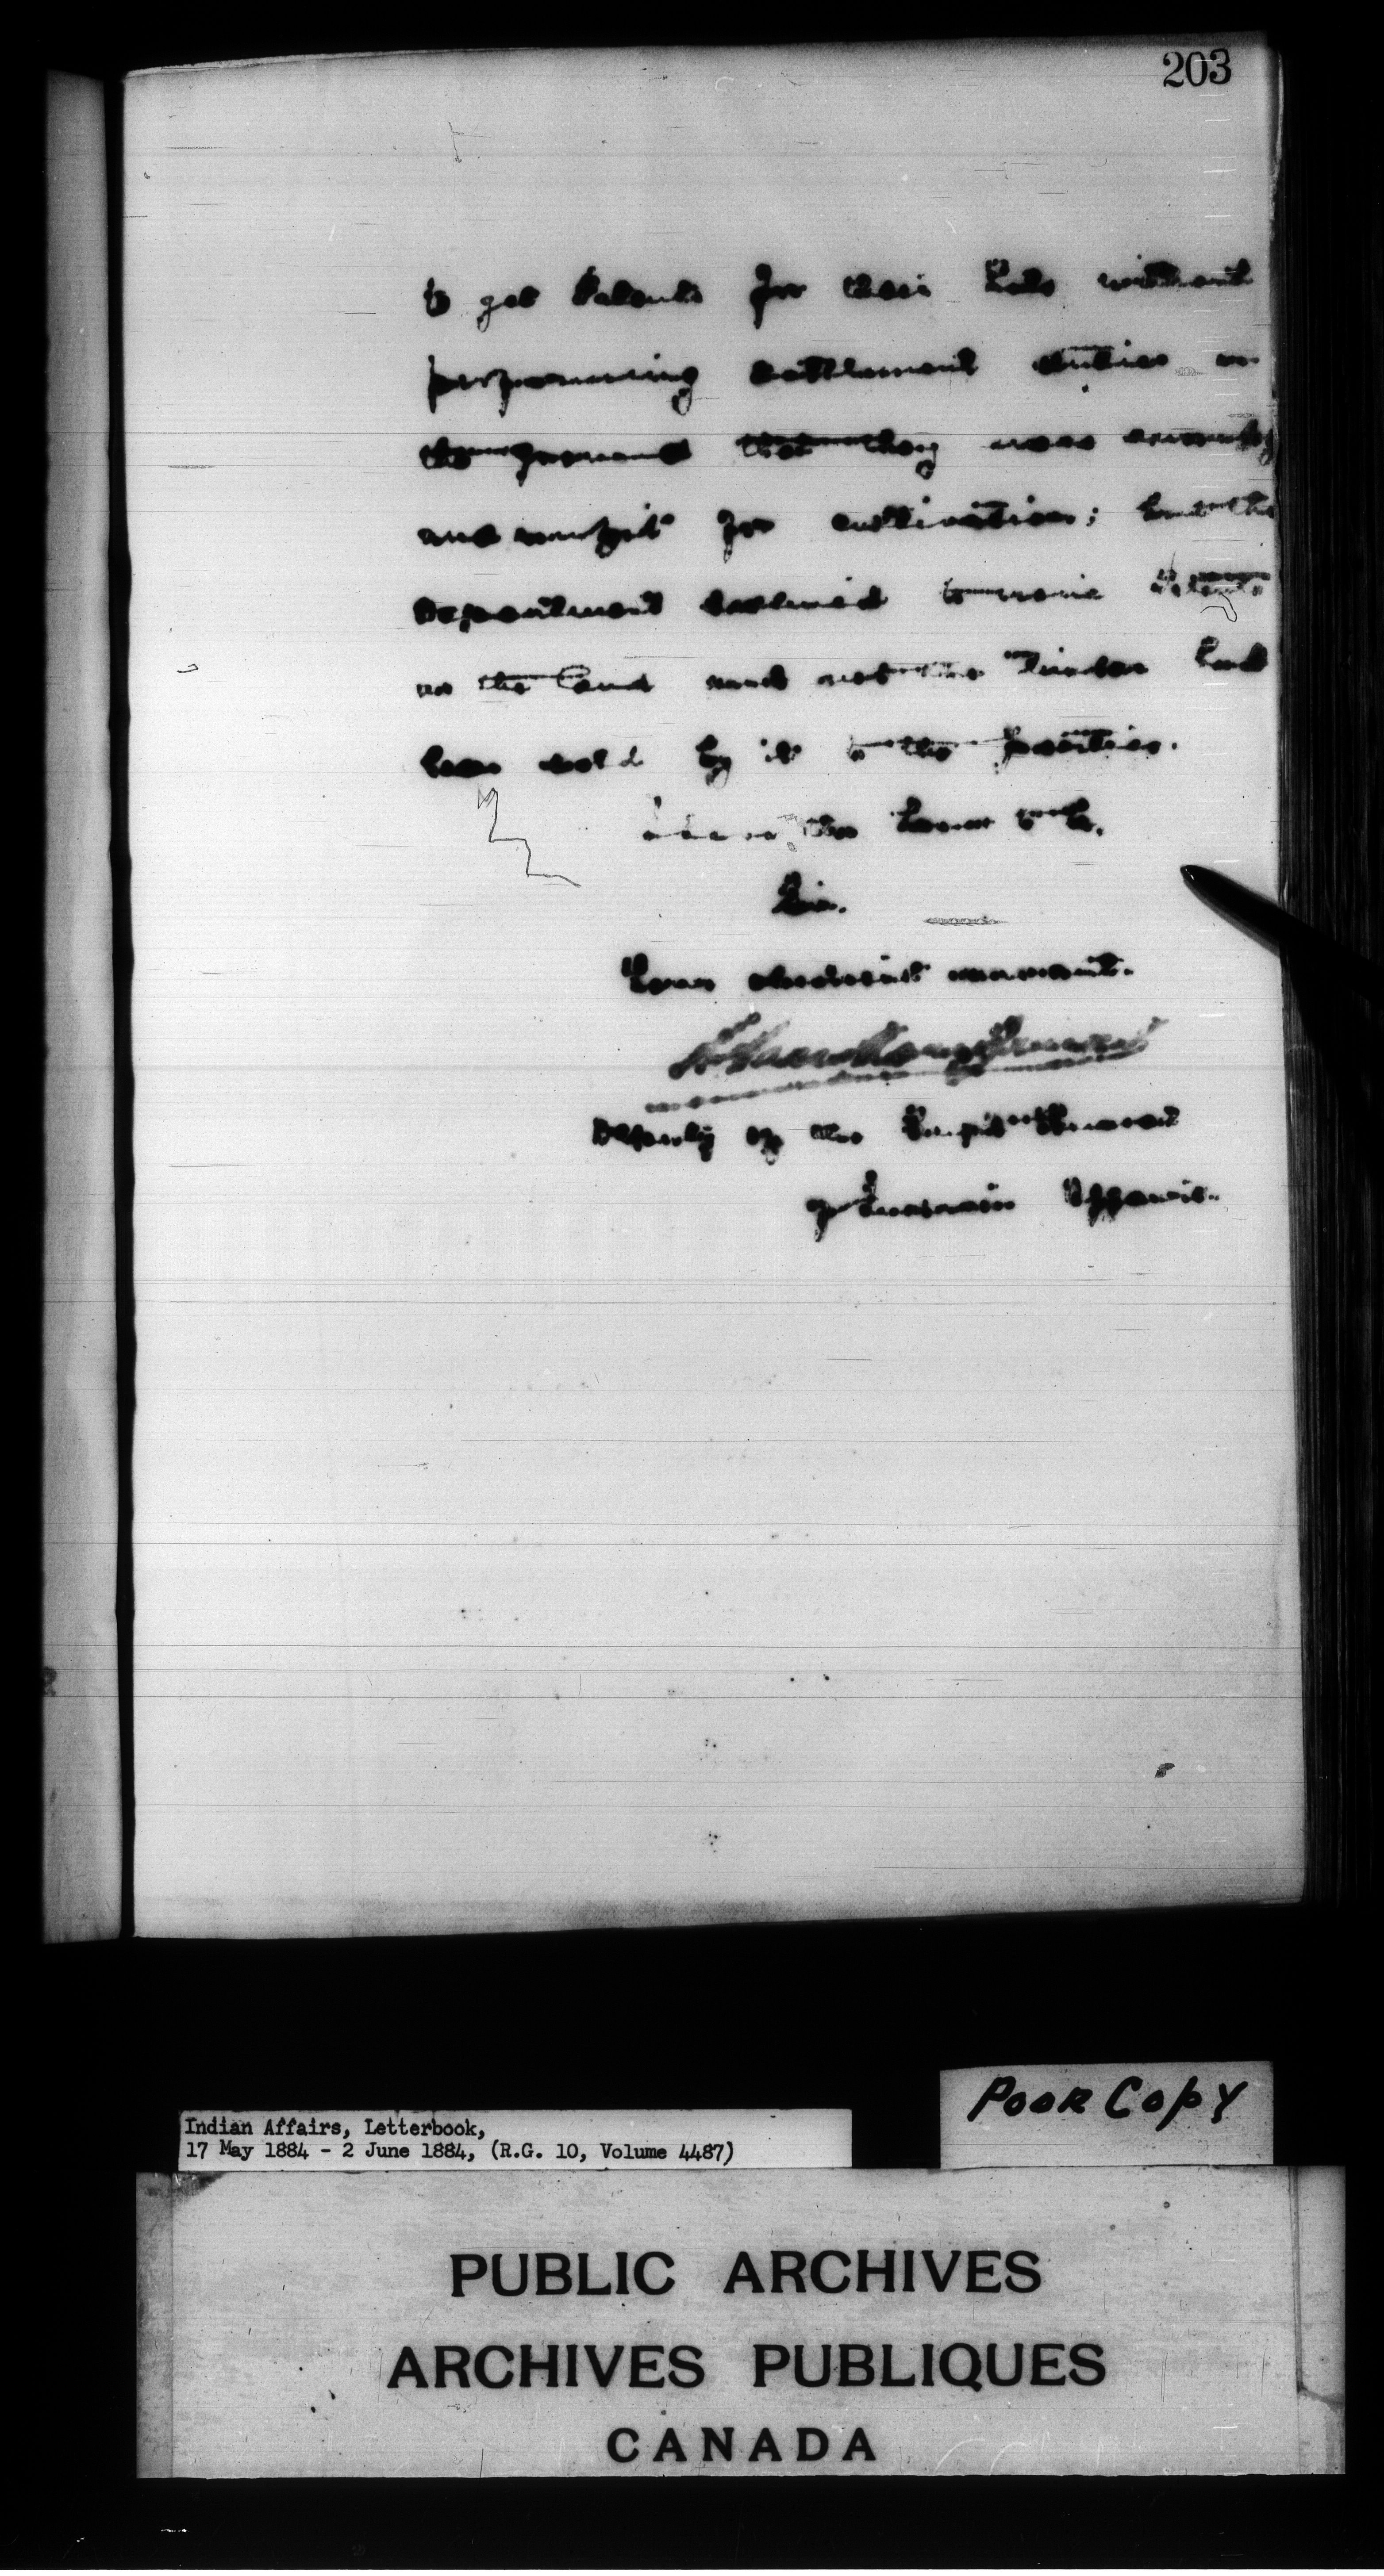 203
to get Patents for their Lots without
performing settlement duties on
the ground that they were swampy
and unfit for cultivation; but the
Department declined to issue Patents
as the land and not the Timber had
been sold by it to the parties.
I have the honor to be,
Sir,
Your obedient servant.
L. Vankoughnet
Deputy of the Supt General
of Indian Affairs.
Indian Affairs, Letterbook,
17 May 1884 - 2 June 1884, (R.G. 10, Volume 4487)
POOR COPY
PUBLIC ARCHIVES
ARCHIVES PUBLIQUES
CANADA